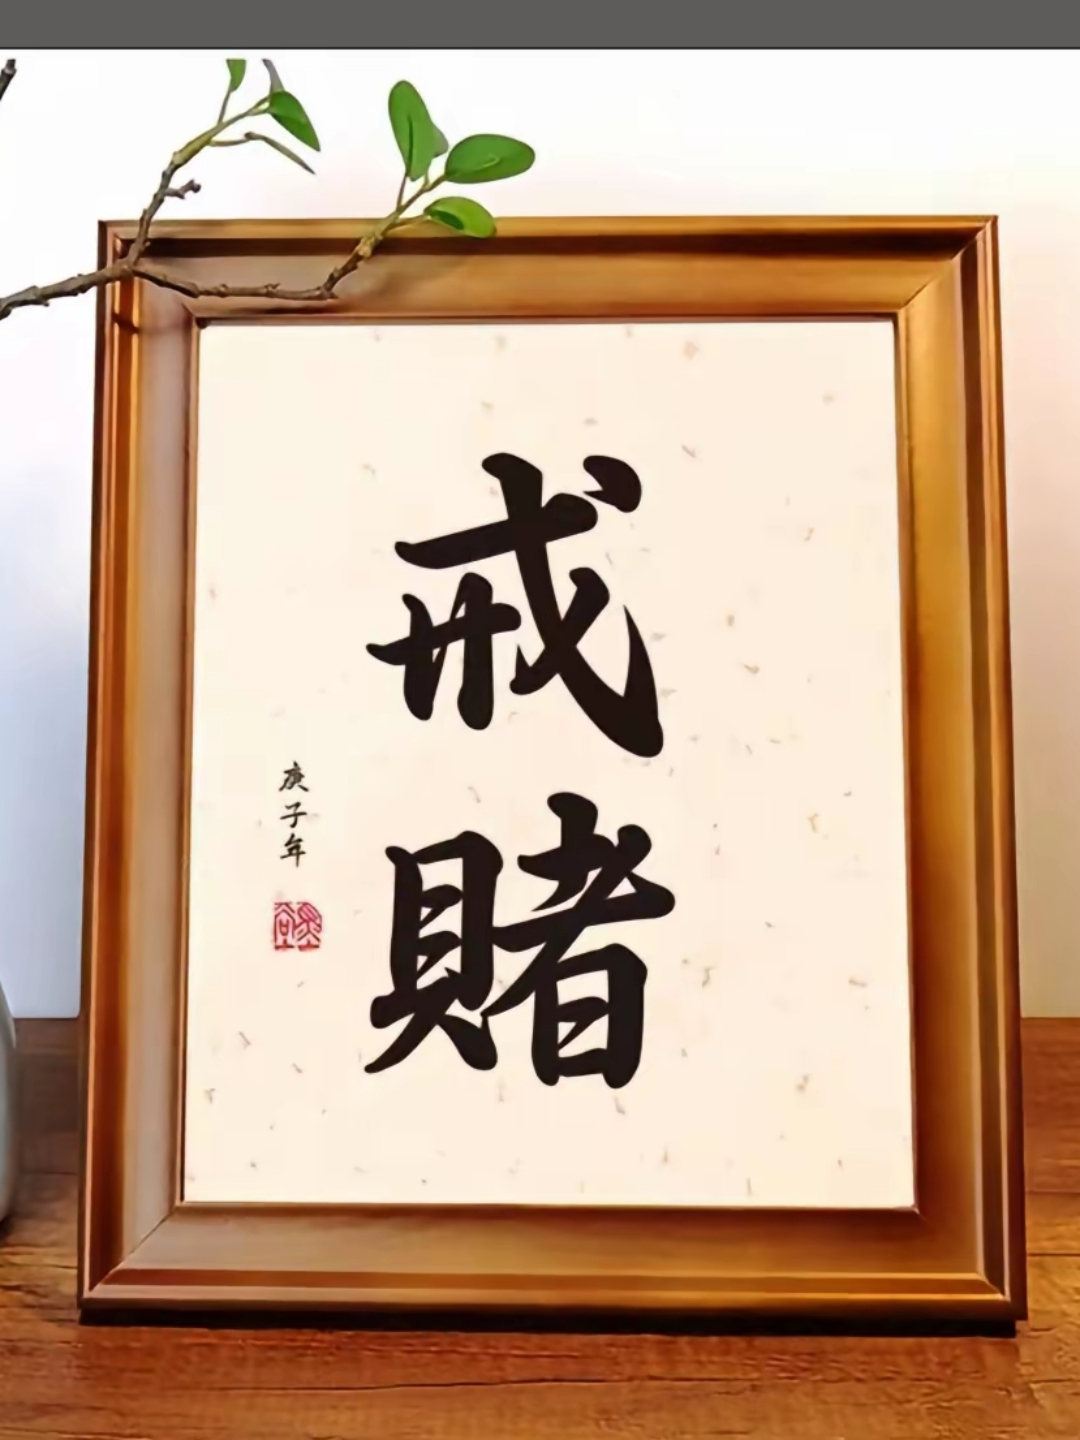 戒賭
庚子年